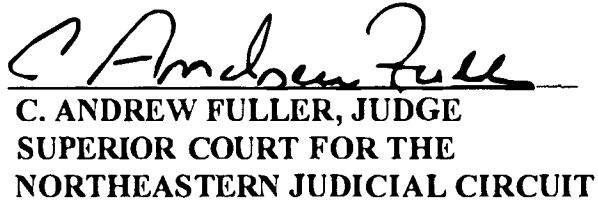 C Andrew Fuller
C. ANDREW FULLER, JUDGE
SUPERIOR COURT FOR THE
NORTHEASTERN JUDICIAL CIRCUIT